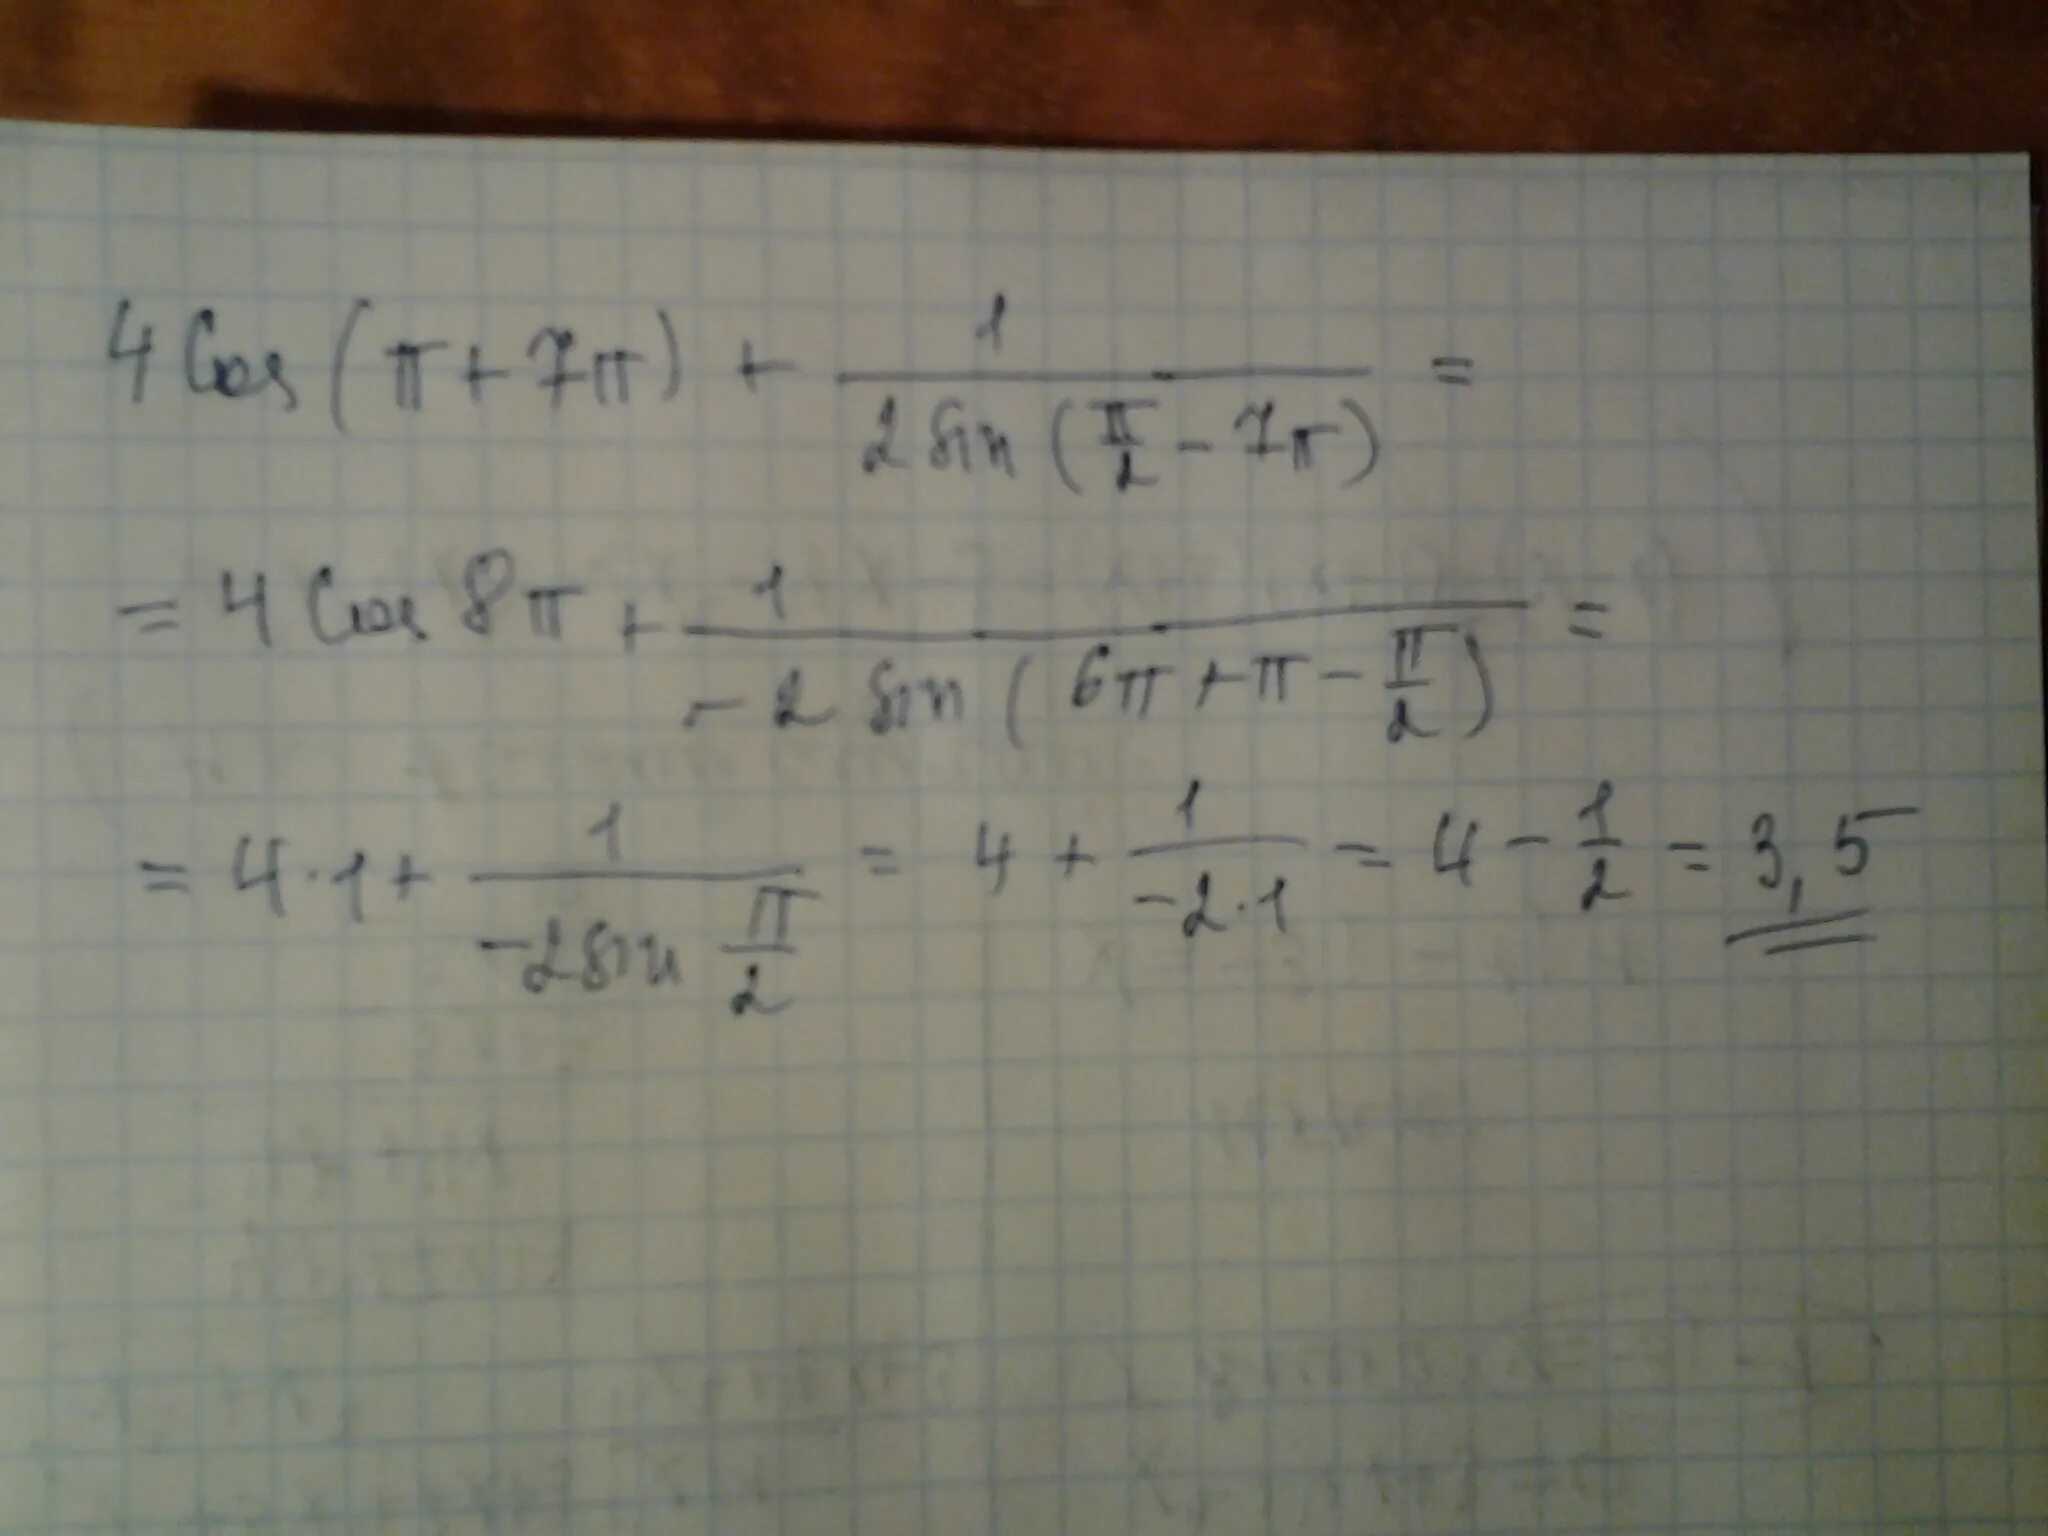 4 Cos (π + 7π) + 1/(2 sin (π/2 - 7π)) =
= 4 Cos 8π + 1/(-2 sin (6π + π - π/2)) =
= 4 · 1 + 1/(-2 sin π/2) = 4 + 1/(-2 · 1) = 4 - 1/2 = 3,5